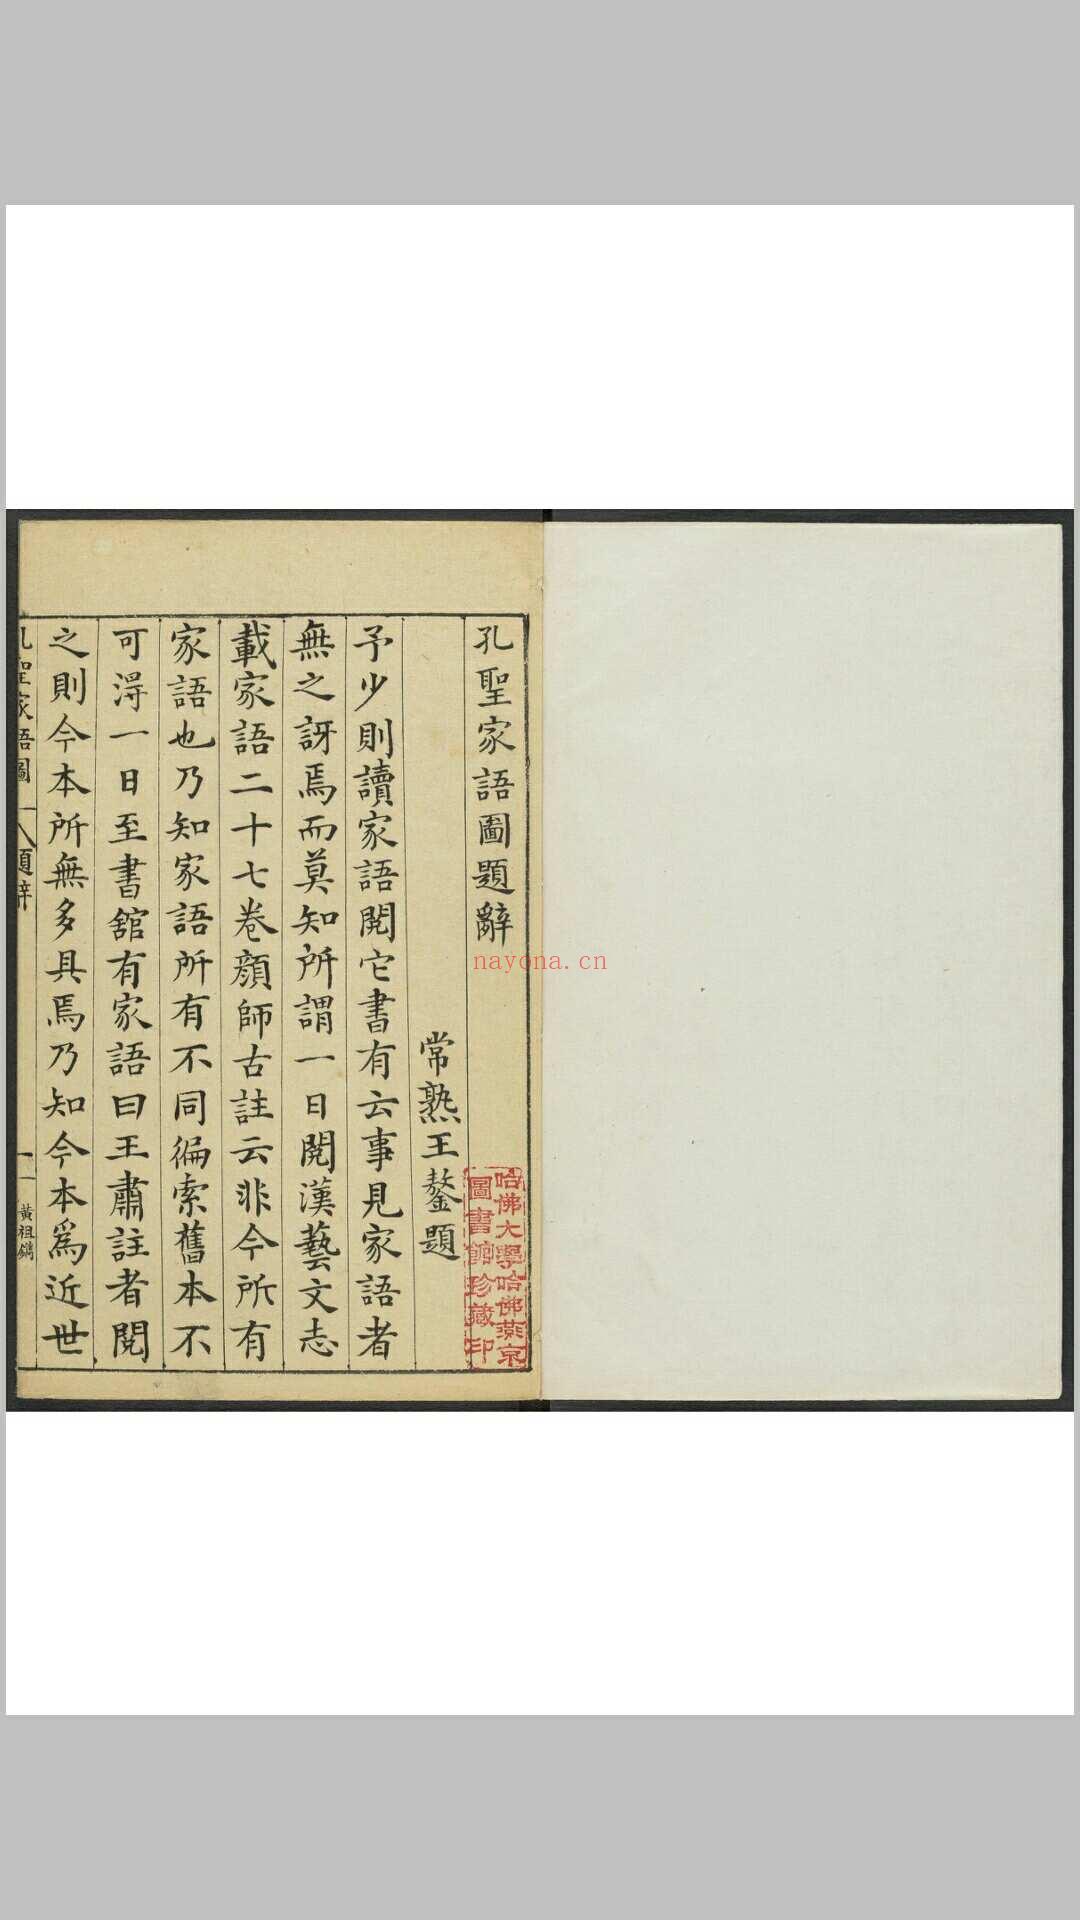 孔聖家語圖題辭
常熟王鏊題
予少則讀家語閱它書有云事見家語者
無之訝焉而莫知所謂一日閱漢藝文志
載家語二十七卷顏師古註云非今所有
家語也乃知家語所有不同徧索舊本不
可淂一日至書舘有家語曰王肅註者閱
之則今本所無多具焉乃知今本爲近世
孔聖家語圖
題辭
一
黃祖鐫
哈佛大學哈佛燕京
圖書館珍藏印
nayona.cn